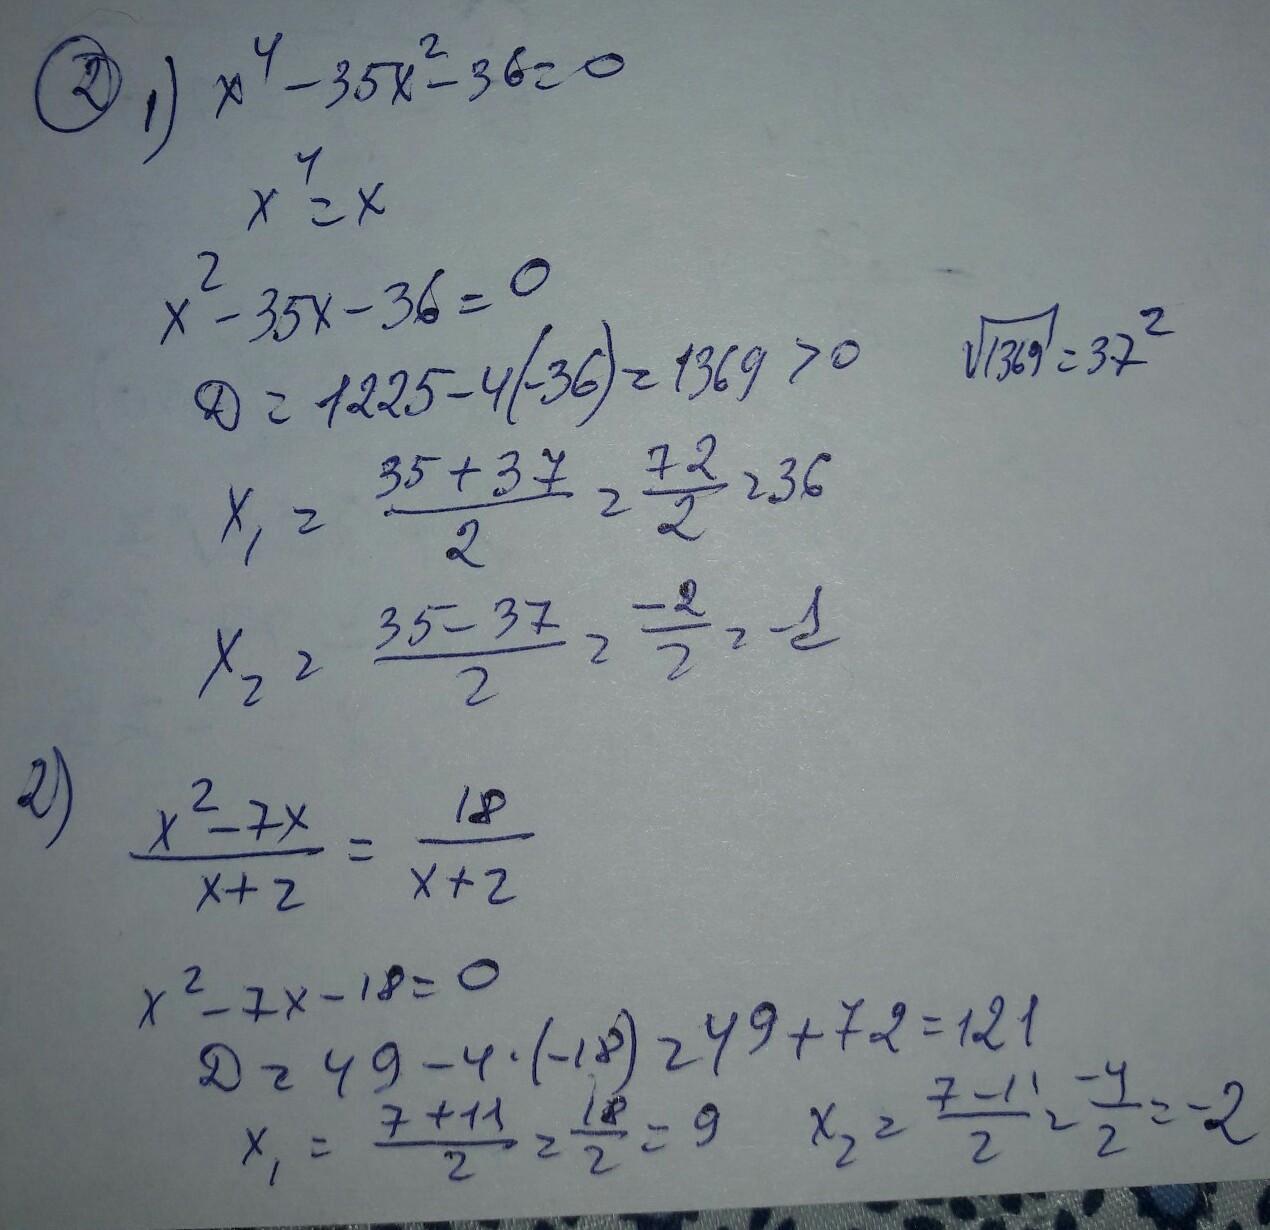 ② 1) x⁴ − 35x² − 36 = 0
x⁴ = x
x² − 35x − 36 = 0
D = 1225 − 4(−36) = 1369 > 0 √1369 = 37²
x₁ = (35 + 37)/2 = 72/2 = 36
x₂ = (35 − 37)/2 = −2/2 = −1
2) (x² − 7x)/(x + 2) = 18/(x + 2)
x² − 7x − 18 = 0
D = 49 − 4 · (−18) = 49 + 72 = 121
x₁ = (7 + 11)/2 = 18/2 = 9 x₂ = (7 − 11)/2 = −4/2 = −2